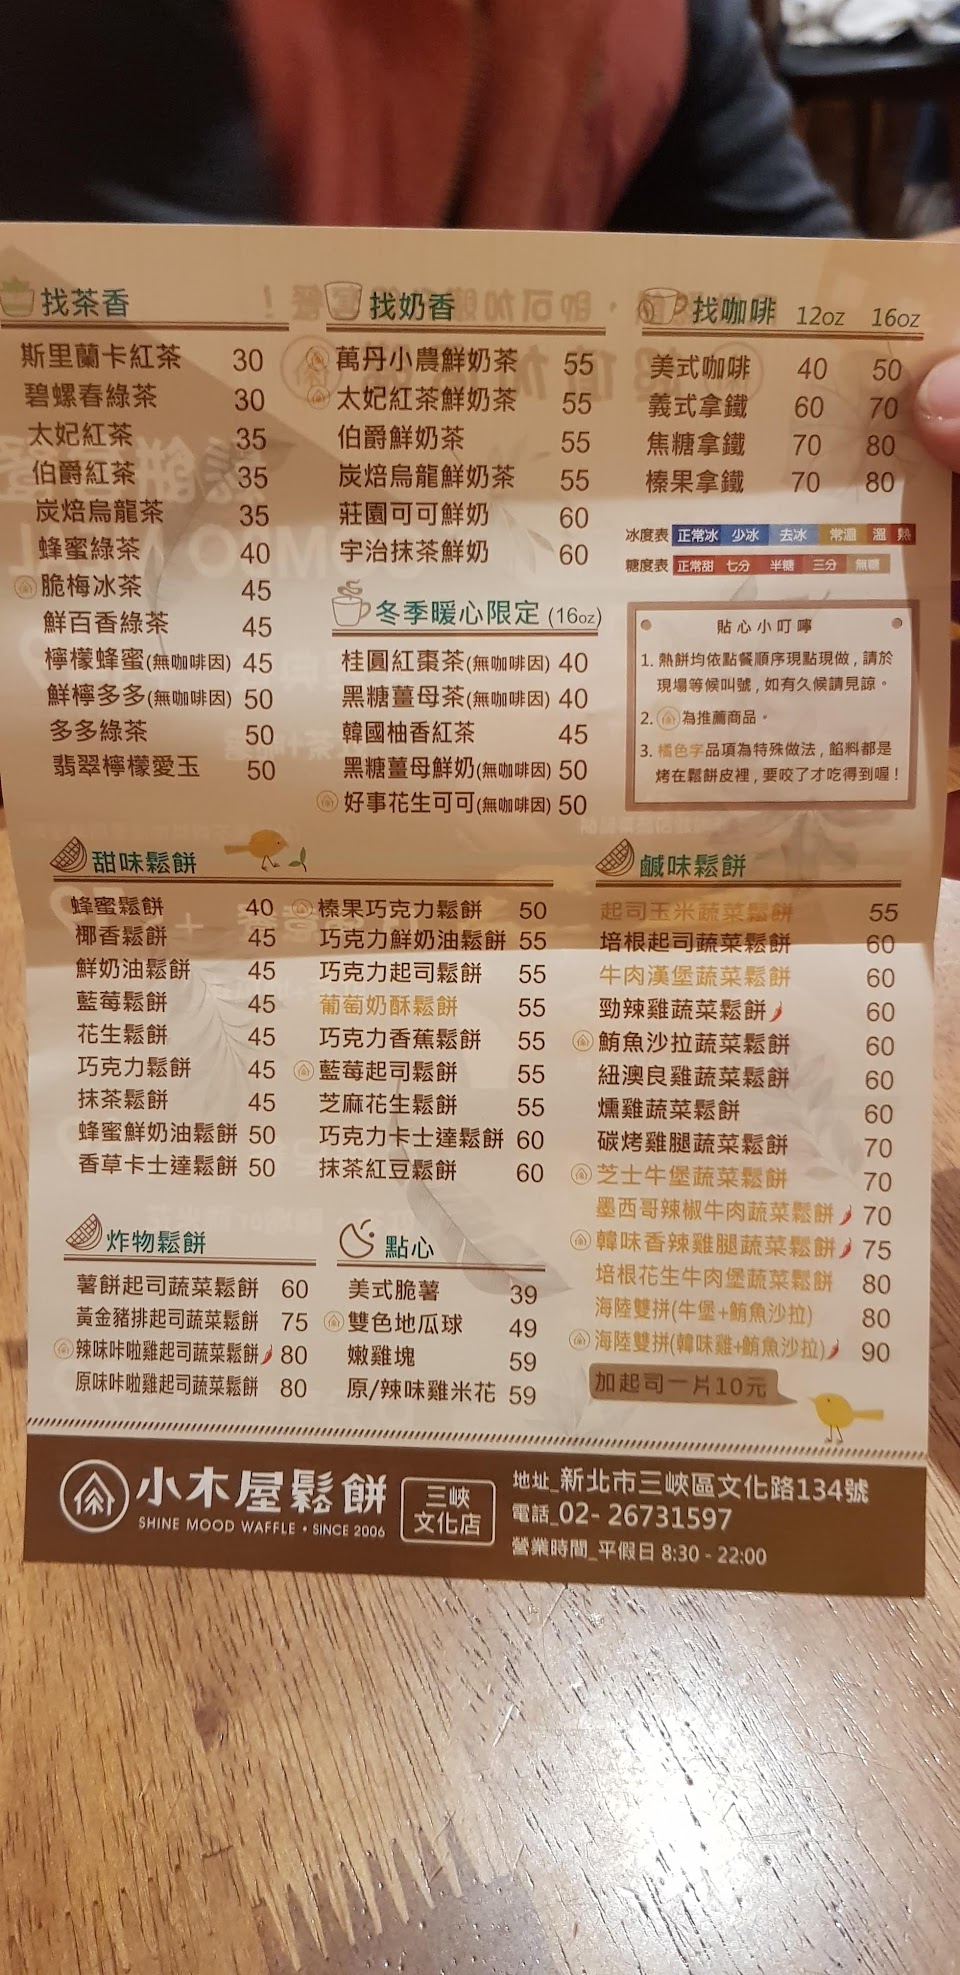 找茶香
斯里蘭卡紅茶 30
碧螺春綠茶 30
太妃紅茶 35
伯爵紅茶 35
炭焙烏龍茶 35
蜂蜜綠茶 40
脆梅冰茶 45
鮮百香綠茶 45
檸檬蜂蜜(無咖啡因) 45
鮮檸多多(無咖啡因) 50
多多綠茶 50
翡翠檸檬愛玉 50
找奶香
萬丹小農鮮奶茶 55
太妃紅茶鮮奶茶 55
伯爵鮮奶茶 55
炭焙烏龍鮮奶茶 55
莊園可可鮮奶 60
宇治抹茶鮮奶 60
冬季暖心限定 (16oz)
桂圓紅棗茶(無咖啡因) 40
黑糖薑母茶(無咖啡因) 40
韓國柚香紅茶 45
黑糖薑母鮮奶(無咖啡因) 50
好事花生可可(無咖啡因) 50
找咖啡 12oz 16oz
美式咖啡 40 50
義式拿鐵 60 70
焦糖拿鐵 70 80
榛果拿鐵 70 80
冰度表 正常冰 少冰 去冰 常溫 溫 熱
糖度表 正常甜 七分 半糖 三分 無糖
貼心小叮嚀
1. 熱餅均依點餐順序現點現做，請於
現場等候叫號，如有久候請見諒。
2. 為推薦商品。
3. 橘色字品項為特殊做法，餡料都是
烤在鬆餅皮裡，要咬了才吃得到喔！
甜味鬆餅
蜂蜜鬆餅 40
椰香鬆餅 45
鮮奶油鬆餅 45
藍莓鬆餅 45
花生鬆餅 45
巧克力鬆餅 45
抹茶鬆餅 45
蜂蜜鮮奶油鬆餅 50
香草卡士達鬆餅 50
榛果巧克力鬆餅 50
巧克力鮮奶油鬆餅 55
巧克力起司鬆餅 55
葡萄奶酥鬆餅 55
巧克力香蕉鬆餅 55
藍莓起司鬆餅 55
芝麻花生鬆餅 55
巧克力卡士達鬆餅 60
抹茶紅豆鬆餅 60
鹹味鬆餅
起司玉米蔬菜鬆餅 55
培根起司蔬菜鬆餅 60
牛肉漢堡蔬菜鬆餅 60
勁辣雞蔬菜鬆餅 60
鮪魚沙拉蔬菜鬆餅 60
紐澳良雞蔬菜鬆餅 60
燻雞蔬菜鬆餅 60
碳烤雞腿蔬菜鬆餅 70
芝士牛堡蔬菜鬆餅 70
墨西哥辣椒牛肉蔬菜鬆餅 70
韓味香辣雞腿蔬菜鬆餅 75
培根花生牛肉堡蔬菜鬆餅 80
海陸雙拼(牛堡+鮪魚沙拉) 80
海陸雙拼(韓味雞+鮪魚沙拉) 90
加起司一片10元
炸物鬆餅
薯餅起司蔬菜鬆餅 60
黃金豬排起司蔬菜鬆餅 75
辣味咔啦雞起司蔬菜鬆餅 80
原味咔啦雞起司蔬菜鬆餅 80
點心
美式脆薯 39
雙色地瓜球 49
嫩雞塊 59
原/辣味雞米花 59
小木屋鬆餅
SHINE MOOD WAFFLE • SINCE 2006
三峽
文化店
地址_新北市三峽區文化路134號
電話_02- 26731597
營業時間_平假日 8:30 - 22:00